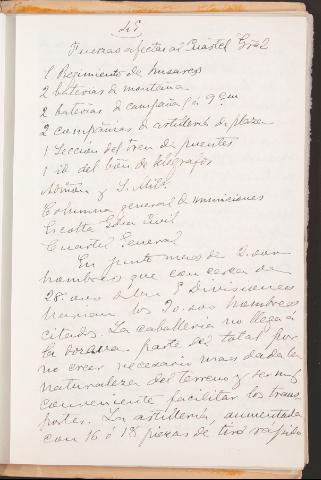 45
Fuerzas afectas al Cuartel Gral
1 Regimiento de husares
2 baterias de montaña
2 baterias de campaña á 9 cm
2 compañias de artilleria de plaza
1 Seccion del tren de puentes
1 id del bón de telegrafos
Admón y S. Mili
Columna general de municiones
Escolta Guar Civil
Cuartel General
En junto mas de 2.000
hombres que con cerca de
28.000 de las Divisiones
harian los 30.000 hombres
citados. La caballeria no llega á
la parte del total por
no creer necesario mas dada la
naturaleza del terreno y ser muy
conveniente facilitar los trans
portes. La artilleria, aumentada
con 16 ó 18 piezas de tiro rápido